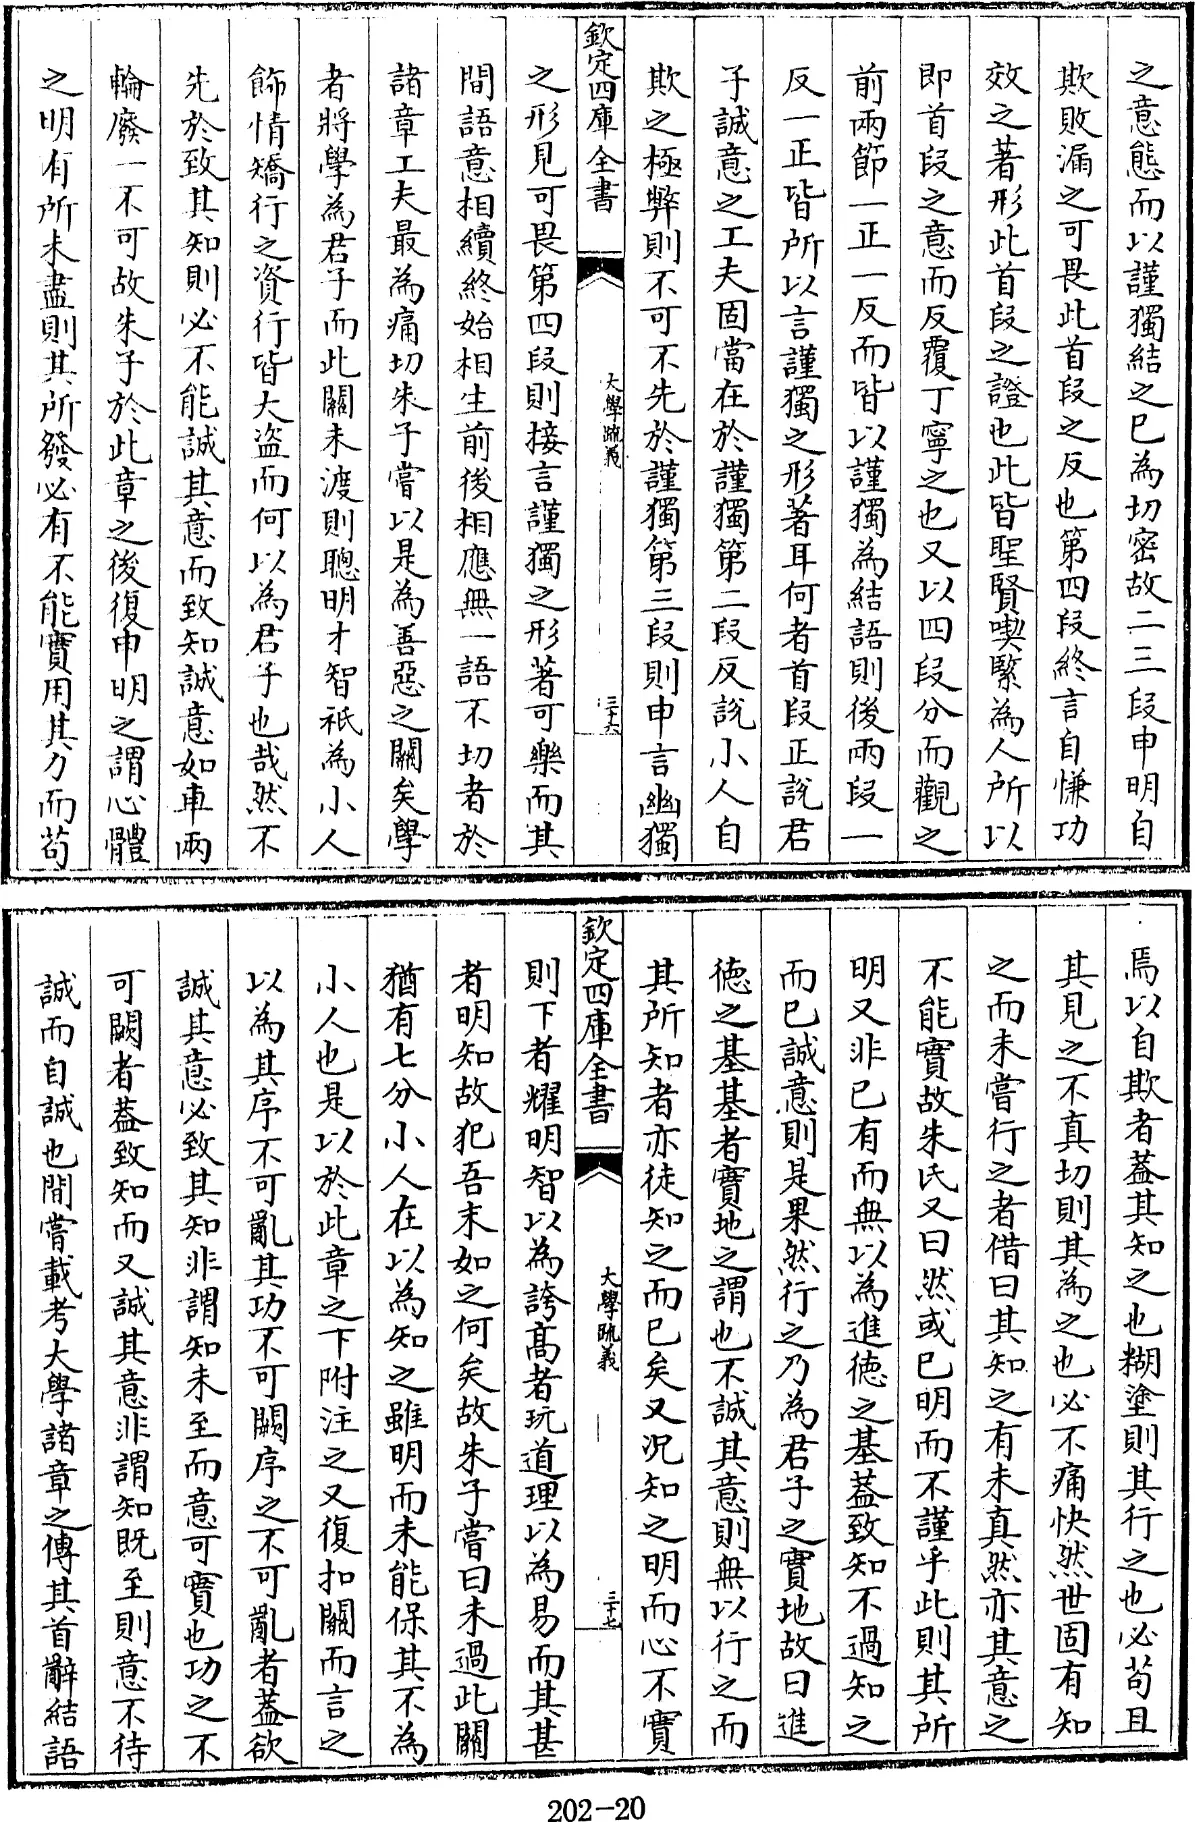 之意態而以謹獨結之已為切密故二三段申明自
欺敗漏之可畏此首段之反也第四段終言自慊功
效之著形此首段之證也此皆聖賢喫緊為人所以
即首段之意而反覆丁寧之也又以四段分而觀之
前兩節一正一反而皆以謹獨為結語則後兩段一
反一正皆所以言謹獨之形著耳何者首段正說君
子誠意之工夫固當在於謹獨第二段反說小人自
欺之極弊則不可不先於謹獨第三段則申言幽獨
欽定四庫全書
大學疏義
三十六
之形見可畏第四段則接言謹獨之形著可樂而其
間語意相續終始相生前後相應無一語不切者於
諸章工夫最為痛切朱子嘗以是為善惡之關矣學
者將學為君子而此關未渡則聰明才智祇為小人
飾情矯行之資行皆大盜而何以為君子也哉然不
先於致其知則必不能誠其意而致知誠意如車兩
輪廢一不可故朱子於此章之後復申明之謂心體
之明有所未盡則其所發必有不能實用其力而苟
焉以自欺者葢其知之也糊塗則其行之也必苟且
其見之不真切則其為之也必不痛快然世固有知
之而未嘗行之者借曰其知之有未真然亦其意之
不能實故朱氏又曰然或已明而不謹乎此則其所
明又非已有而無以為進德之基葢致知不過知之
而已誠意則是果然行之乃為君子之實地故曰進
德之基基者實地之謂也不誠其意則無以行之而
其所知者亦徒知之而已矣又況知之明而心不實
欽定四庫全書
大學疏義
三十七
則下者耀明智以為誇高者玩道理以為易而其甚
者明知故犯吾末如之何矣故朱子嘗曰未過此關
猶有七分小人在以為知之雖明而未能保其不為
小人也是以於此章之下附注之又復扣關而言之
以為其序不可亂其功不可闕序之不可亂者葢欲
誠其意必致其知非謂知未至而意可實也功之不
可闕者葢致知而又誠其意非謂知既至則意不待
誠而自誠也間嘗載考大學諸章之傳其首辭結語
202-20